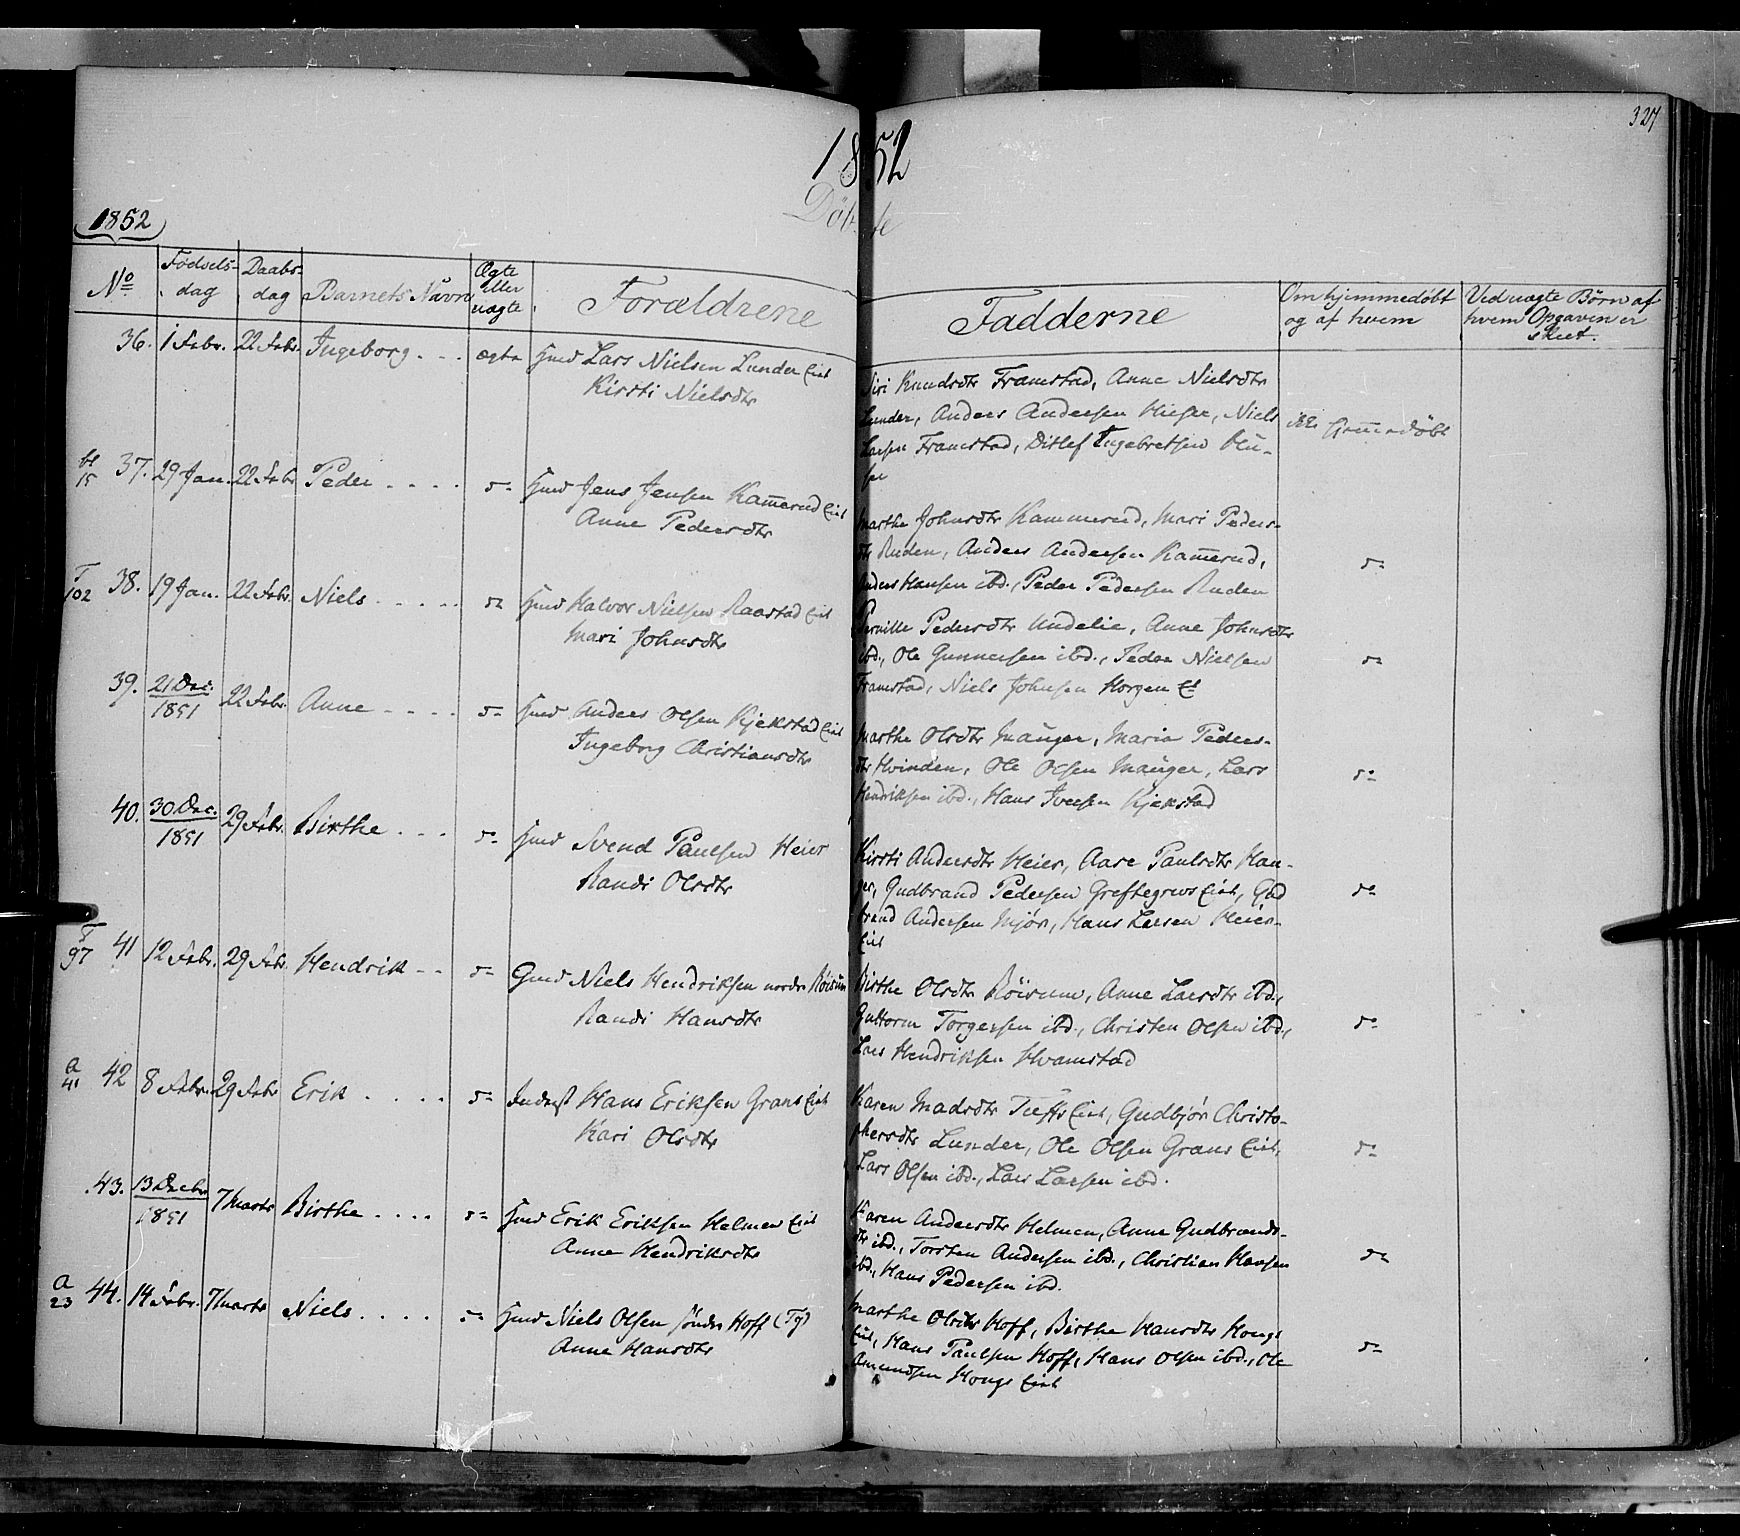 327
1852
Døbte
1852
No
Fødselsdag
Daabsdag
Barnets Navn
Ægte eller uægte
Forældrene
Fadderne
Om hjemmedøbt og af hvem
Ved uægte Børn af hvem Opgaven er skeet.
36. 1 Febr. 22 Febr. Ingeborg . . . ægte Hmd Lars Nielsen Lunder Eiet
Kirsti Nielsdtr
Siri Knudsdtr Framstad, Anne Nielsdtr
Lunder, Anders Andersen, Niels
Larsen Framstad, Ditlef Ingebretsen
ikke hjemmedøbt
15 37. 29 Jan. 22 Febr Peder . . . . do Hmd Jens Jensen Kam̄erud Eiet
Anne Pedersdtr
Marthe Johnsdtr Kammerud, Mari Peders-
dtr Ruden, Anders Andersen Kam̄erud,
Anders Hansen ibd., Peder Pedersen Ruden
do
T 102 38. 19 Jan. 22 Febr. Niels . . . . . do Hmd Halvor Nielsen Raastad Eiet
Mari Johnsdtr
Pernille Pedersdtr Undelie, Anne Johnsdtr
ibd., Ole Gunnersen ibd., Peder Nielsen
Framstad, Niels Johnsen Horgen
do
39. 21 Dec. 1851 22 Febr. Anne . . . . do Hmd Anders Olsen Kjekstad Eiet
Ingeborg Christiansdtr
Marthe Olsdtr Mauger, Maria Peders-
dtr Hvinden, Ole Olsen Mauger, Lars
Hendriksen ibd., Hans Iversen Kjekstad
do
40. 30 Dec. 1851 29 Febr. Birthe . . . do Hmd Svend Paulsen Heier
Randi Olsdtr
Kirsti Andersdtr Heier, Aase Paulsdtr Hau-
ger, Gudbrand Pedersen Greftegrev Eiet, Gud
brand Andersen Mjør, Hans Larsen Heier-
Eiet
do
T 97 41 12 Febr. 29 Febr. Hendrik . . do Gmd Niels Hendriksen nordre Røisum
Randi Hansdtr
Birthe Olsdtr Røisum, Anne Larsdtr ibd.,
Guttorm Torgersen ibd., Christen Olsen ibd.,
Lars Hendriksen Hvamstad
do
a 41 42 8 Febr. 29 Febr Erik . . . . do Inderst Hans Eriksen Grans Eiet
Kari Olsdtr
Karen Madsdtr Eiet, Gudbjør Christo-
phersdtr Lunder, Ole Olsen Grans Eiet,
Lars Olsen ibd., Lars Larsen ibd.
do
43. 13 Decbr 1851 7 Marts Birthe . . . . do Hmd Erik Eriksen Helmen Eiet
Anne Hendriksdtr
Karen Andersdtr Helmen, Anne Gudbrands-
dtr ibd., Torsten Andersen ibd., Christian Hansen
ibd., Hans Pedersen ibd.
do
a 23 44. 14 Febr. 7 Marts Niels . . . . do Hmd Niels Olsen søndre Hoff (Tg)
Anne Hansdtr
Marthe Olsdtr Hoff, Birthe Hansdtr Hongs
Eiet, Hans Paulsen Hoff, Hans Olsen ibd., Ole
Amundsen Hongs Eiet
do